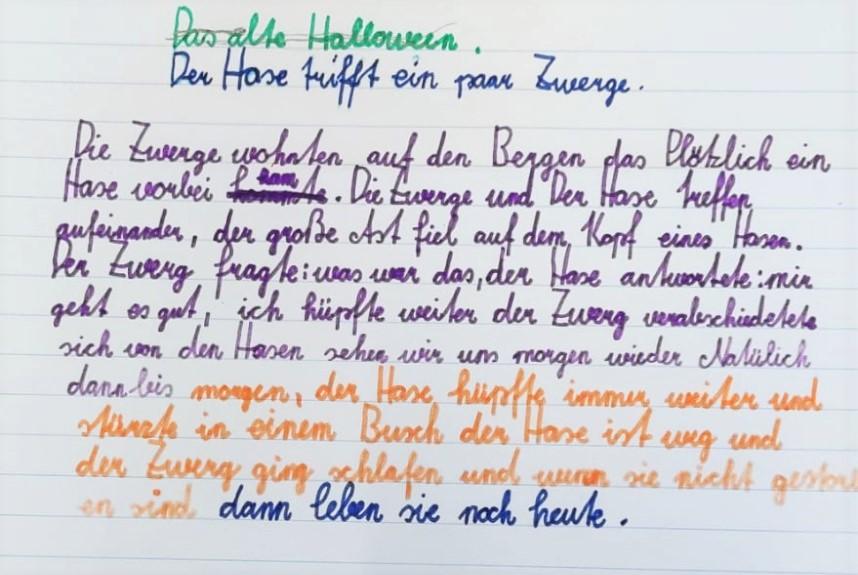 Das alte Halloween.
Der Hase trifft ein paar Zwerge.
Die Zwerge wohnten auf den Bergen das Plötzlich ein
Hase vorbei kam. Die Zwerge und Der Hase treffen
aufeinander, der große Ast fiel auf dem Kopf eines Hasen.
Der Zwerg fragte: was war das, der Hase antwortete: mir
geht es gut, ich hüpfte weiter der Zwerg verabschiedetete
sich von den Hasen sehen wir uns morgen wieder Natülich
dann bis morgen, der Hase hüpfte immer weiter und
stürzte in einem Busch der Hase ist weg und
der Zwerg ging schlafen und wenn sie nicht gestorb
en sind dann leben sie noch heute.